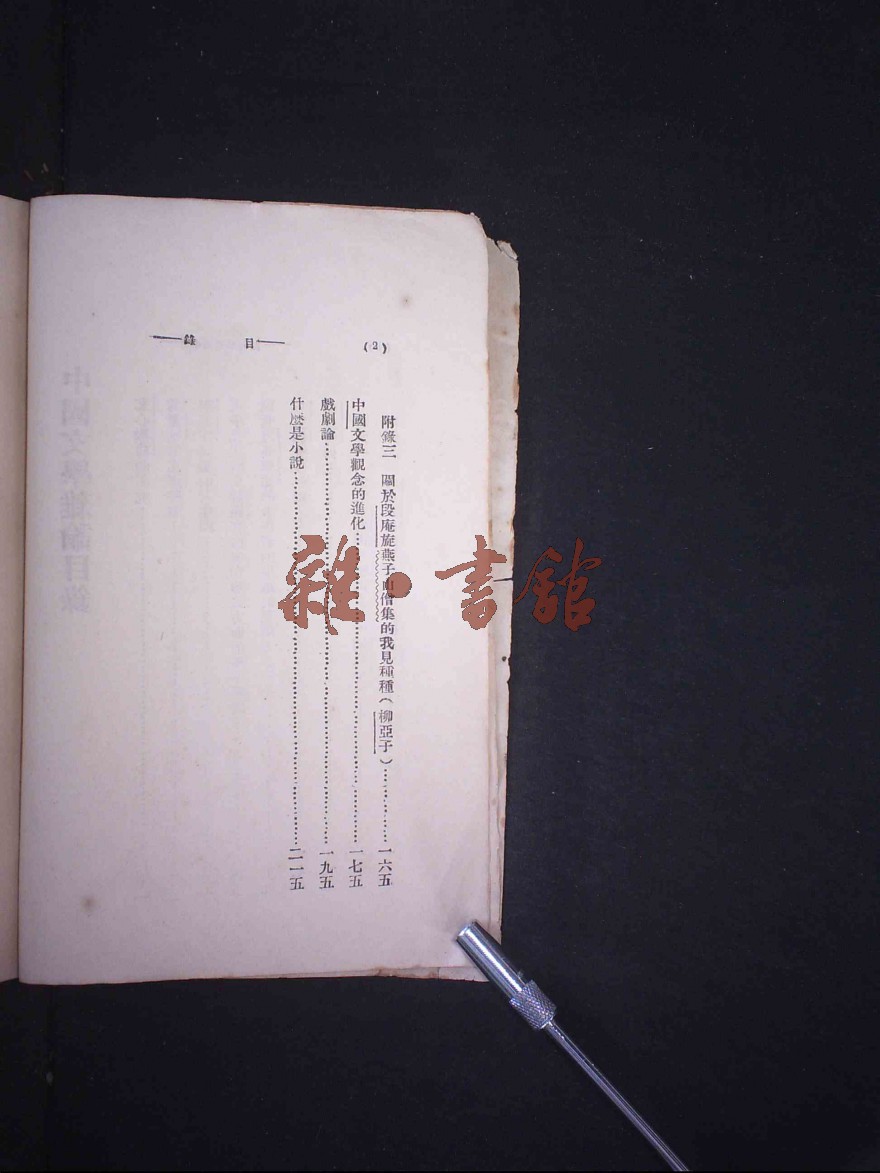 (2)
目　錄
附錄三　關於段庵旋燕子山僧集的我見種種（柳亞子）……一六五
中國文學觀念的進化……一七五
戲劇論……一九五
什麽是小說……二一五
雜·書館